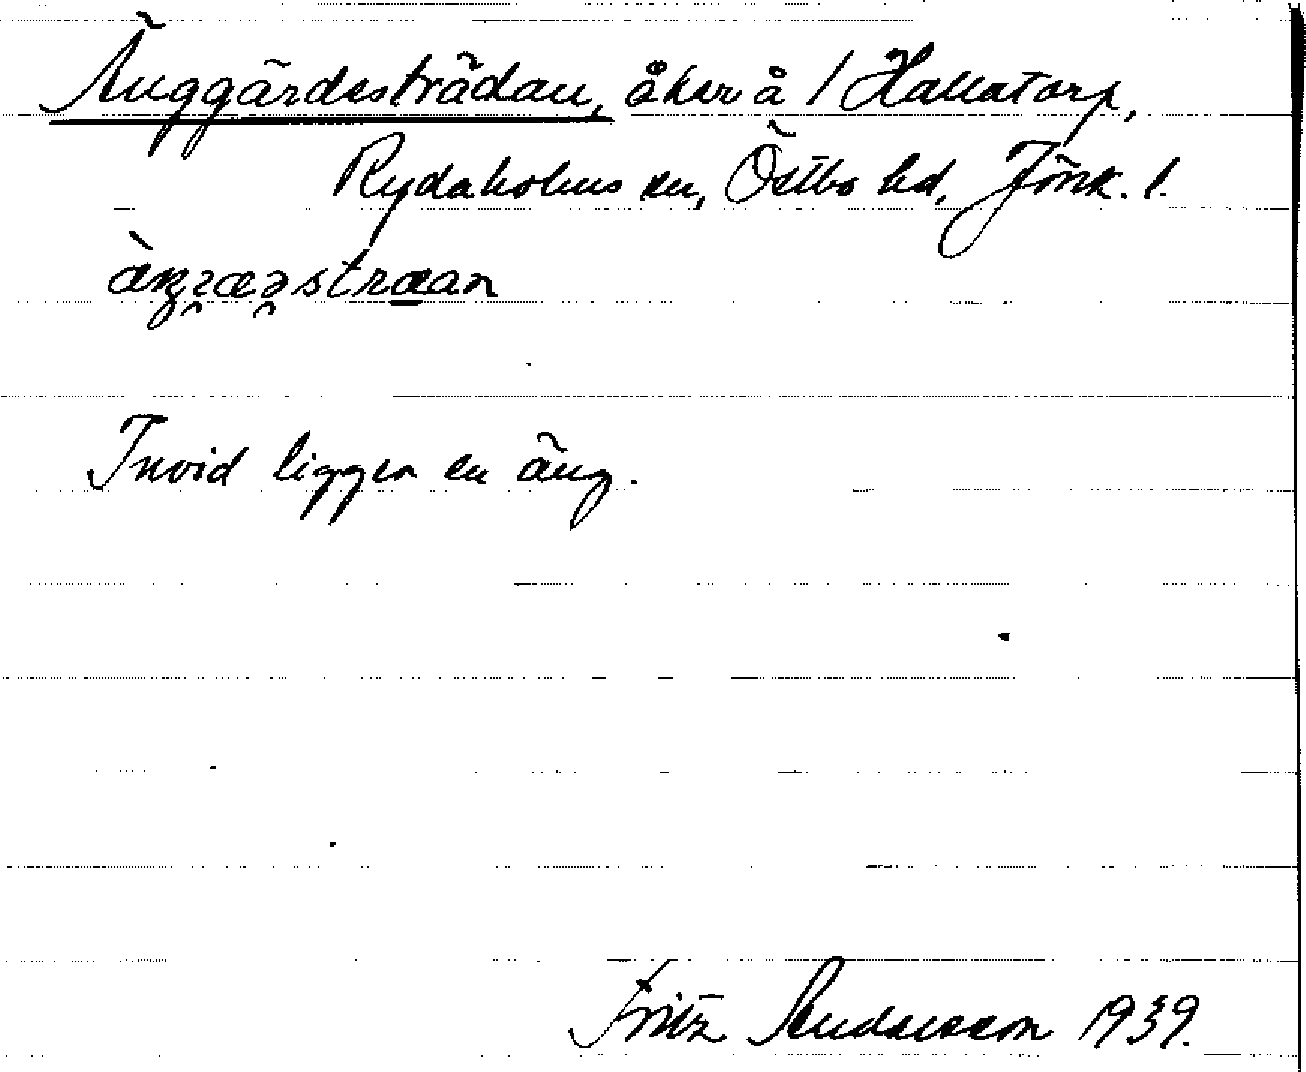 Änggärdesträdan, åker å 1 Hallatorp,
Rydaholms sn, Östbo hd, Jönk. l.
Invid ligger en äng.
Fritz Andersson 1939.